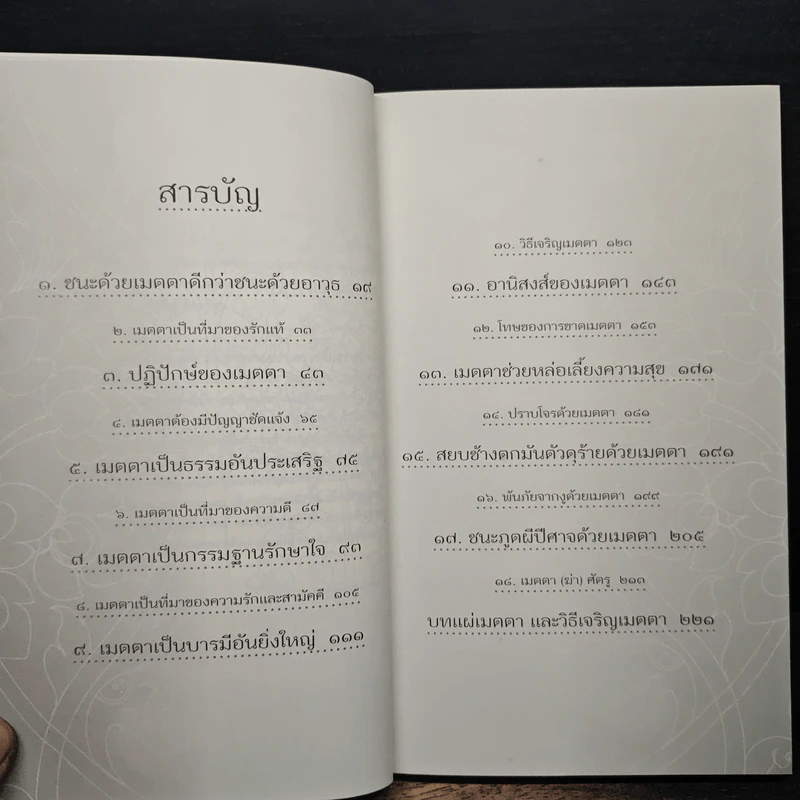 สารบัญ
๑. ชนะด้วยเมตตาดีกว่าชนะด้วยอาวุธ ๑๙
๒. เมตตาเป็นที่มาของรักแท้ ๓๓
๓. ปฏิปักษ์ของเมตตา ๔๓
๔. เมตตาต้องมีปัญญาชัดแจ้ง ๖๕
๕. เมตตาเป็นธรรมอันประเสริฐ ๗๕
๖. เมตตาเป็นที่มาของความดี ๘๗
๗. เมตตาเป็นกรรมฐานรักษาใจ ๙๓
๘. เมตตาเป็นที่มาของความรักและสามัคคี ๑๐๕
๙. เมตตาเป็นบารมีอันยิ่งใหญ่ ๑๑๑
๑๐. วิธีเจริญเมตตา ๑๒๓
๑๑. อานิสงส์ของเมตตา ๑๔๓
๑๒. โทษของการขาดเมตตา ๑๕๓
๑๓. เมตตาช่วยหล่อเลี้ยงความสุข ๑๗๑
๑๔. ปราบโจรด้วยเมตตา ๑๘๑
๑๕. สยบช้างตกมันตัวดุร้ายด้วยเมตตา ๑๙๑
๑๖. พ้นภัยจากงูด้วยเมตตา ๑๙๙
๑๗. ชนะภูตผีปีศาจด้วยเมตตา ๒๐๕
๑๘. เมตตา (ฆ่า) ศัตรู ๒๑๓
บทแผ่เมตตา และวิธีเจริญเมตตา ๒๒๑